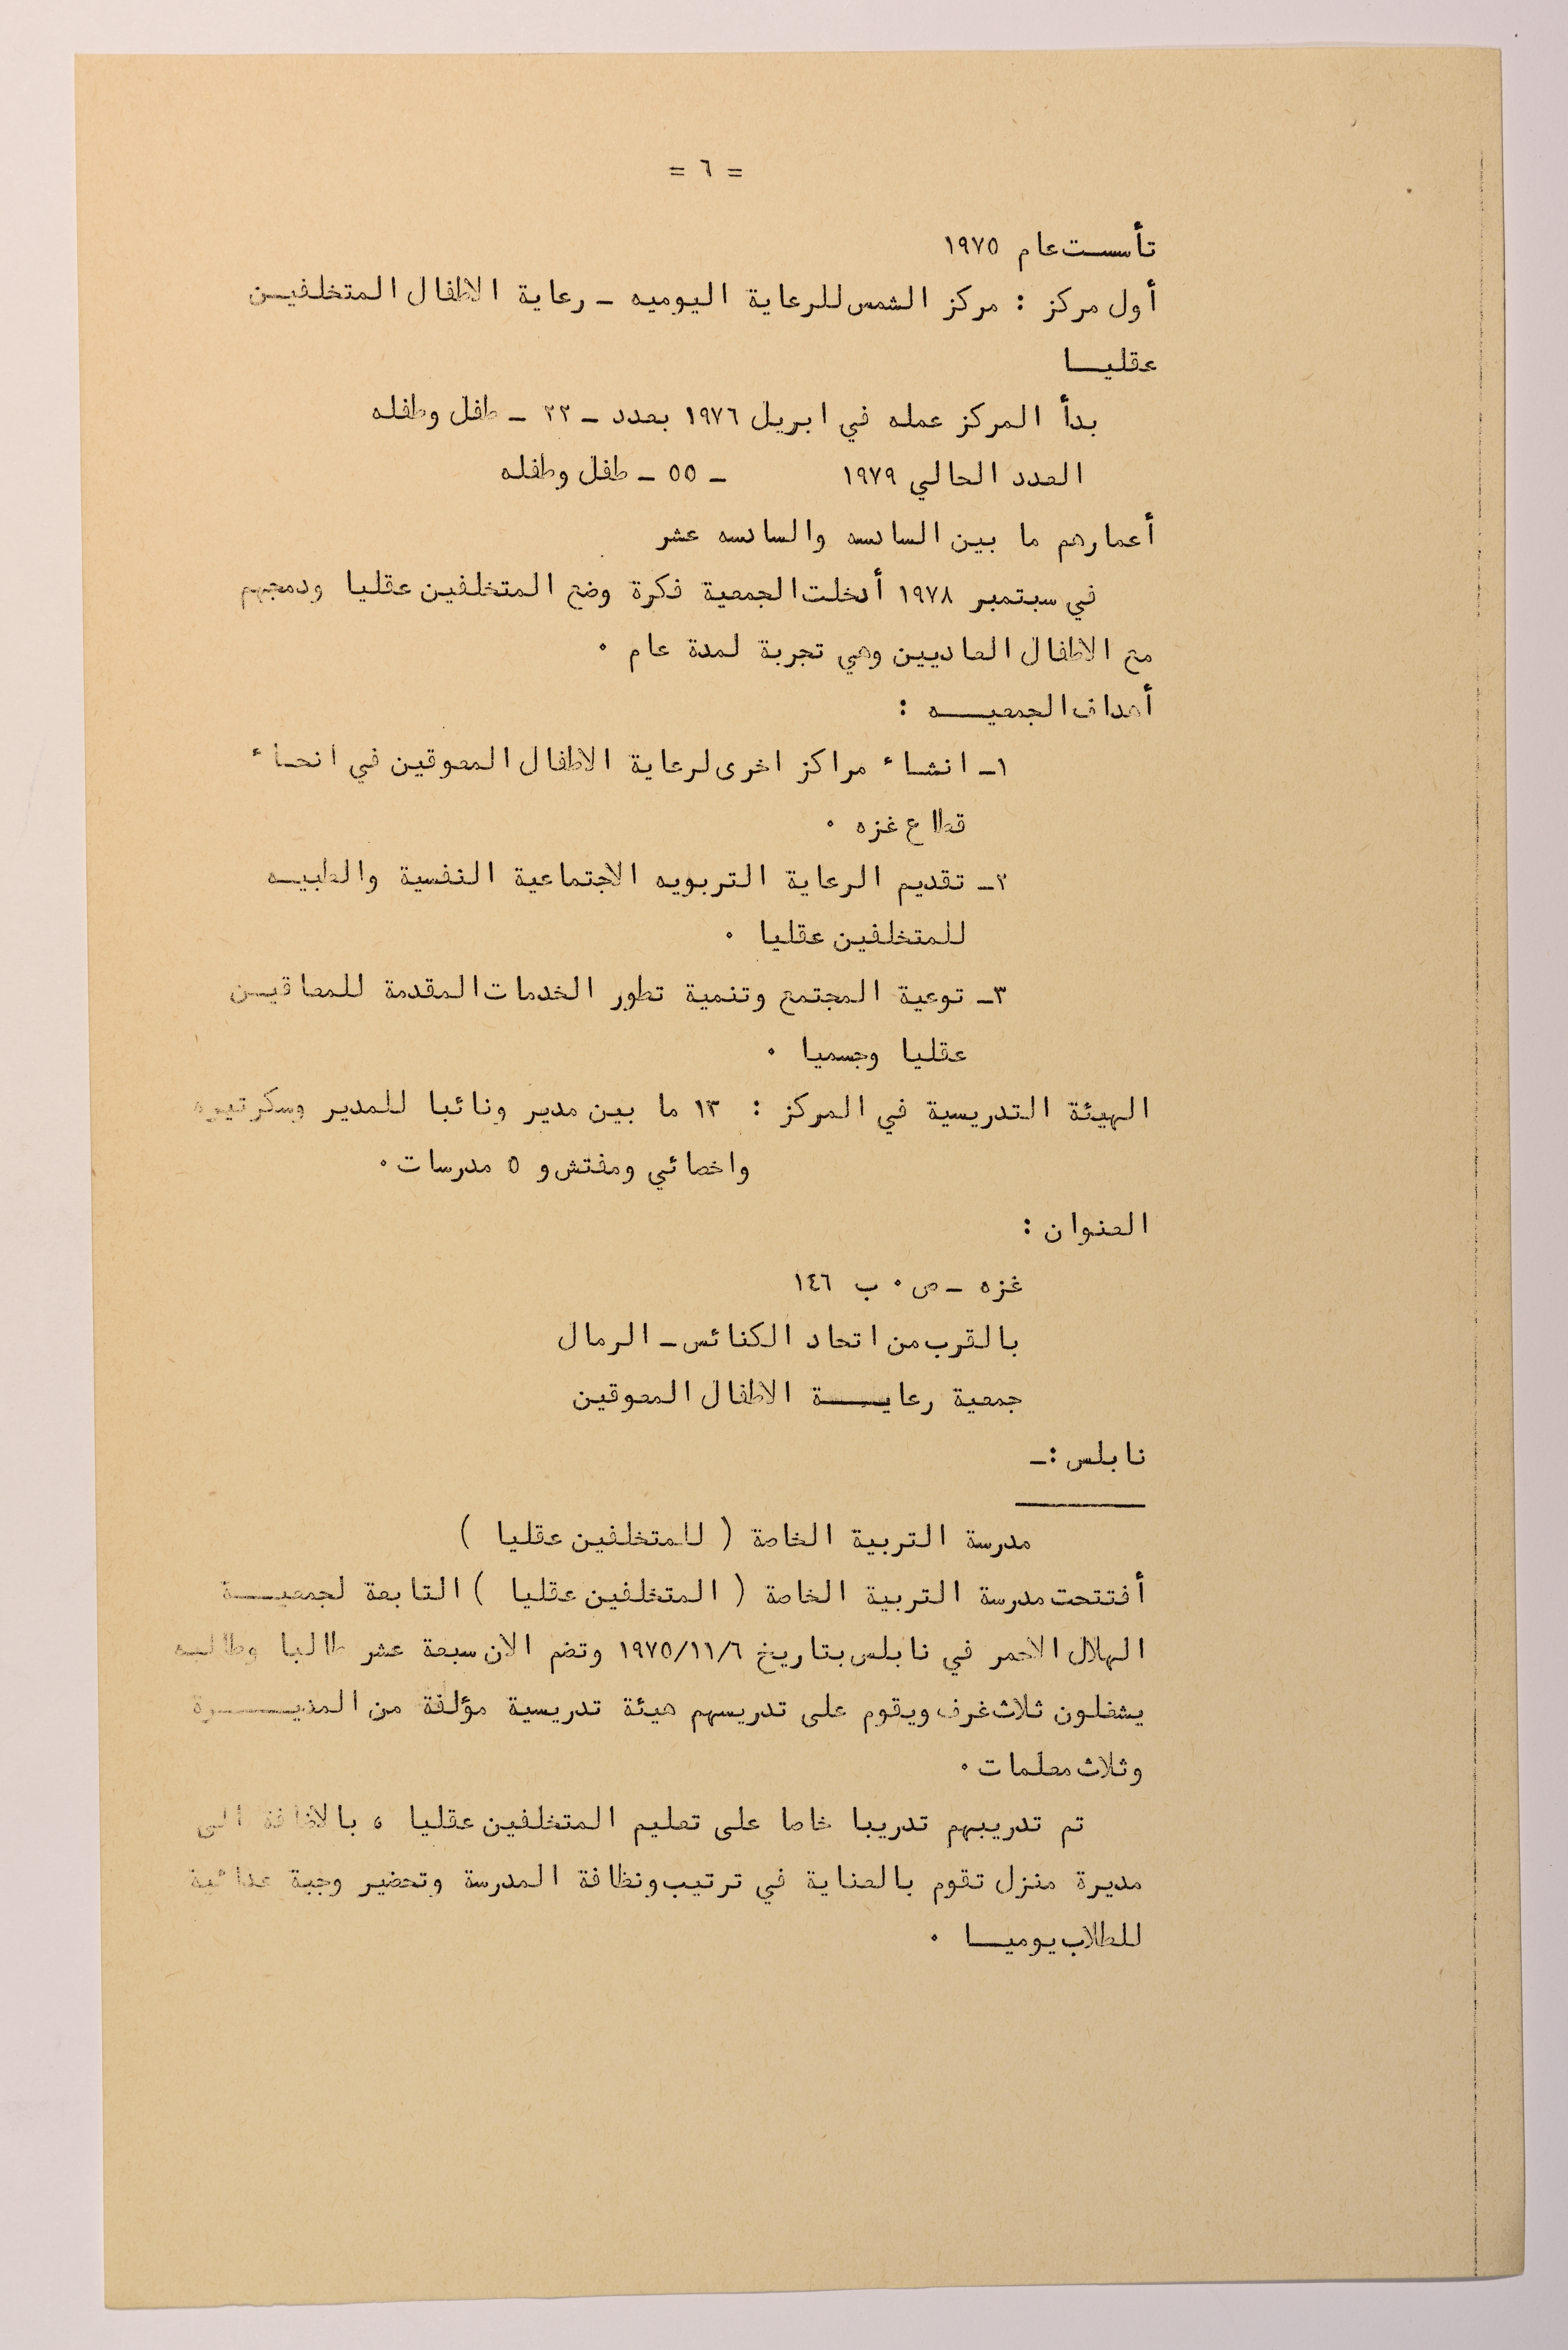 = ٦ =
تأسست عام ١٩٧٥
أول مركز : مركز الشمس للرعاية اليوميه ـ رعاية الاطفال المتخلفيـن
عقليــا
بدأ المركز عمله في ابريل ١٩٧٦ بعدد ـ ٢٢ ـ طفل وطفله
العدد الحالي ١٩٧٩ ـ ٥٥ ـ طفل وطفله
أعمارهم ما بين السادسه والسادسه عشر
في سبتمبر ١٩٧٨ أدخلت الجمعية فكرة وضع المتخلفين عقليا ودمجهم
مع الاطفال العاديين وهي تجربة لمدة عام ٠
أهداف الجمعيــه :
١ـ انشاء مراكز اخرى لرعاية الاطفال المعوقين في انحاء
قطاع غزه ٠
٢ـ تقديم الرعاية التربويه الاجتماعية النفسية والطبيـه
للمتخلفين عقليا ٠
٣ـ توعية المجتمع وتنمية تطور الخدمات المقدمة للمعاقيـن
عقليا وجسميا ٠
الهيئة التدريسية في المركز : ١٣ ما بين مدير ونائبا للمدير وسكرتيره
واخصائي ومفتش و ٥ مدرسات ٠
العنوان :
غزه ـ ص ٠ ب ١٤٦
بالقرب من اتحاد الكنائس ـ الرمال
جمعية رعايـــة الاطفال المعوقين
نابلس :ـ
مدرسة التربية الخاصة ( للمتخلفين عقليا )
أفتتحت مدرسة التربية الخاصة ( المتخلفين عقليا ) التابعة لجمعيـــة
الهلال الاحمر في نابلس بتاريخ ١٩٧٥/١١/٦ وتضم الان سبعة عشر طالبا وطالبـه
يشغلون ثلاث غرف ويقوم على تدريسهم هيئة تدريسية مؤلفة من المديــــرة
وثلاث معلمات ٠
تم تدريبهم تدريبا خاصا على تعليم المتخلفين عقليا ، بالاضافة الى
مديرة منزل تقوم بالعناية في ترتيب ونظافة المدرسة وتحضير وجبة غدائية
للطلاب يوميــا ٠